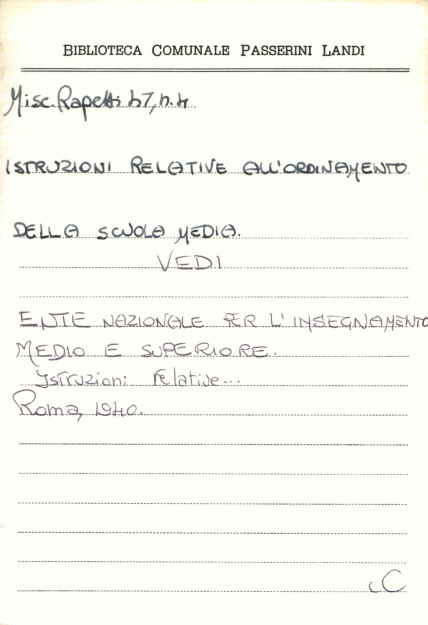 BIBLIOTECA COMUNALE PASSERINI LANDI
Misc. Rapetti 47, n. 4
ISTRUZIONI RELATIVE ALL'ORDINAMENTO
DELLA SCUOLA MEDIA.
VEDI
ENTE NAZIONALE PER L'INSEGNAMENTO
MEDIO E SUPERIORE.
Istruzioni relative...
Roma, 1940.
C